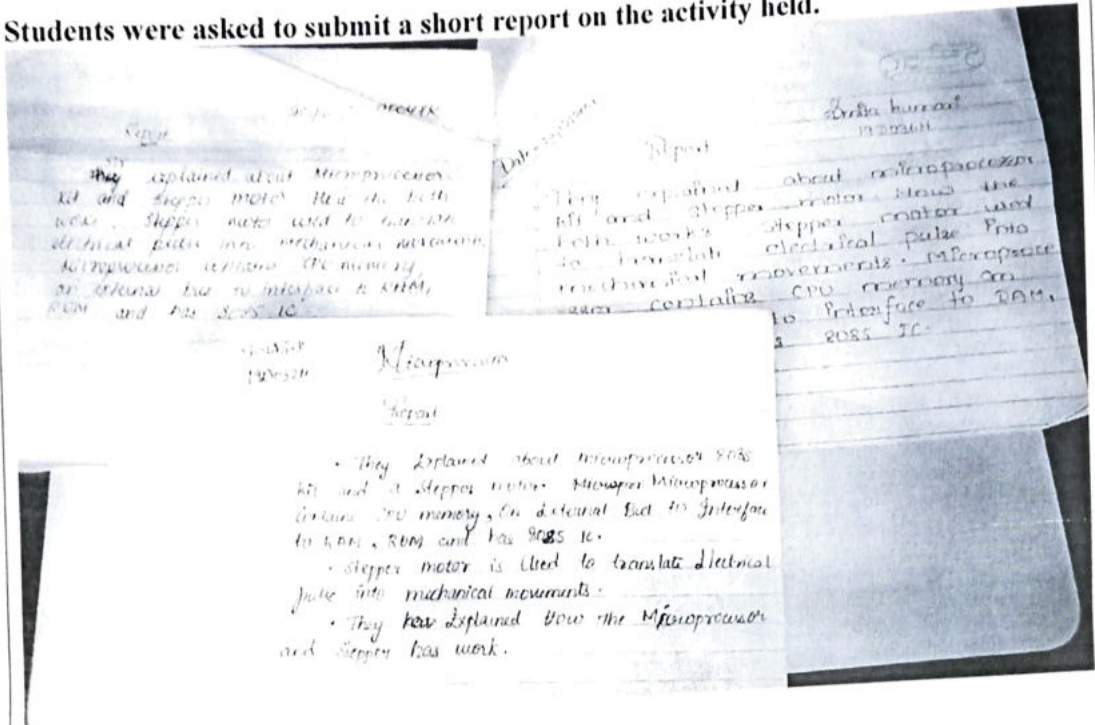 Students were asked to submit a short report on the activity held.
Report
They explained about Microprocessor
kit and Stepper motor How the both
work. Stepper motor used to translate
electrical pulses into mechanical movements.
Microprocessor contains CPU memory,
an external bus to interface to RAM,
ROM and has 8085 IC
kumari
Report
They explained about microprocessor
kit and Stepper motor How the
both works stepper motor used
to translate electrical pulse into
mechanical movements. Microproce
contains CPU memory on
to interface to RAM,
8085 IC.
Report
• They Explained about microprocessor 8085
kit and a Stepper motor. Microper Microprocessor
Contains CPU memory, On External Bus to Interface
to RAM, ROM and has 8085 IC.
• Stepper motor is Used to translate Electrical
pulse into mechanical movements.
• They Explained how the Microprocessor
and Stepper has work.